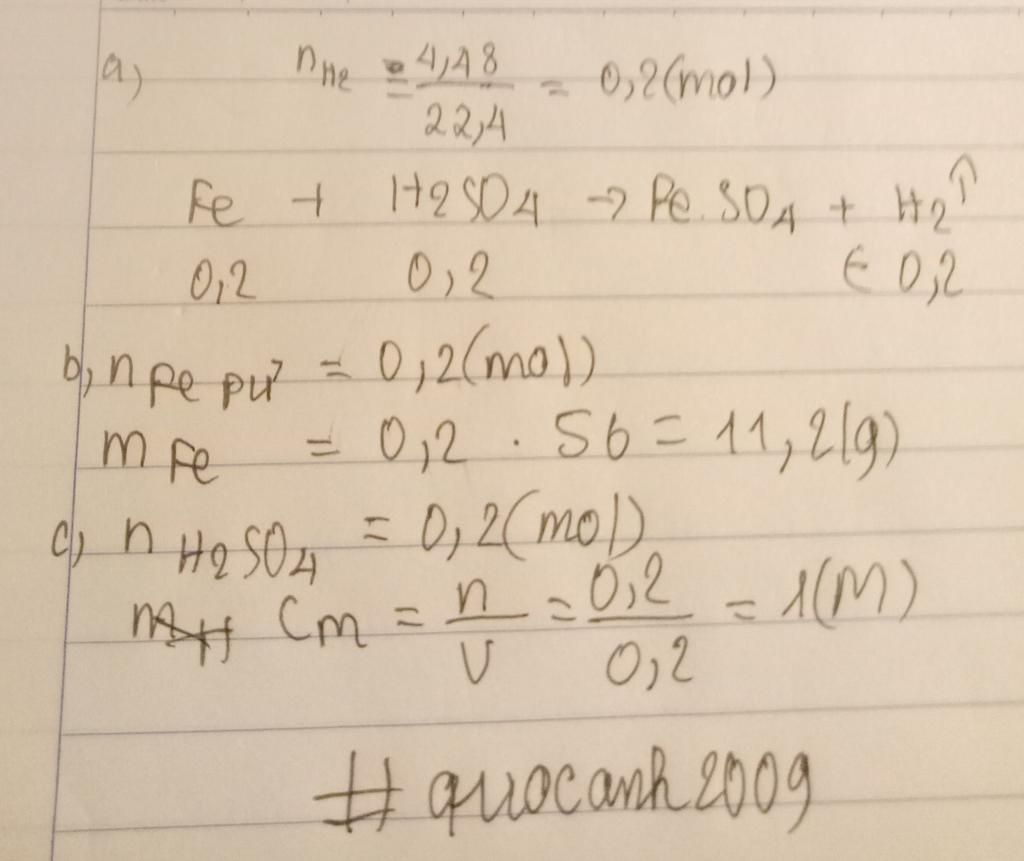 a) nH2 = 4,48/22,4 = 0,2(mol)
Fe + H2SO4 → FeSO4 + H2↑
0,2 0,2 ← 0,2
b, nFe pứ = 0,2(mol)
mFe = 0,2 . 56 = 11,2(g)
c) nH2SO4 = 0,2(mol)
Cm = n/V = 0,2/0,2 = 1(M)
# quocanh2009